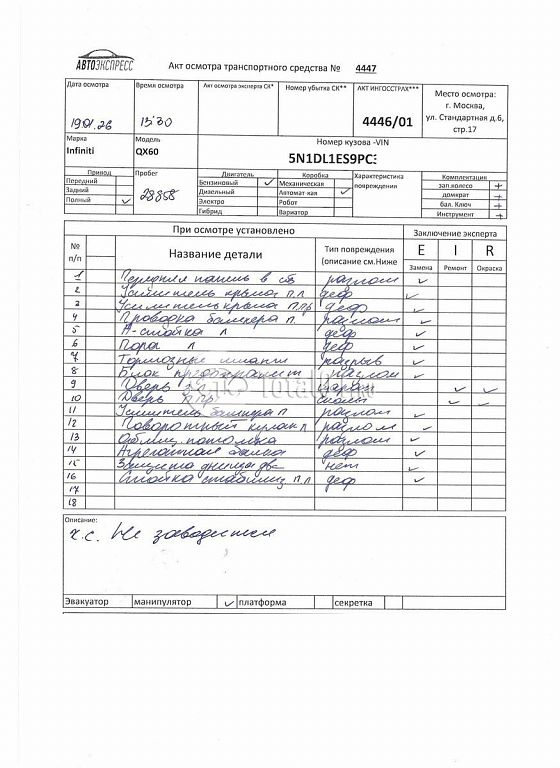 АВТОЭКСПРЕСС
Акт осмотра транспортного средства № 4447
Дата осмотра
19.01.26
Время осмотра
15:30
Акт осмотра эксперта СК*
Номер убытка СК**
АКТ ИНГОССТРАХ***
4446/01
Место осмотра:
г. Москва,
ул. Стандартная д.6,
стр.17
Марка
Infiniti
Модель
QX60
Номер кузова -VIN
5N1DL1ES9PC
Привод
Передний
Задний
Полный ✓
Пробег
28858
Двигатель
Бензиновый ✓
Дизельный
Электро
Гибрид
Коробка
Механическая
Автомат кая ✓
Робот
Вариатор
Характеристика
повреждения
Комплектация
зап.колесо +
домкрат +
бал. Ключ +
Инструмент +
При осмотре установлено
Заключение эксперта
№
п/п
Название детали
Тип повреждения
(описание см.Ниже
E I R
Замена Ремонт Окраска
1 Передняя панель в сб разлом ✓
2 Усилитель крыла п.л деф ✓
3 Усилитель крыла п.пр деф ✓
4 Проводка бампера п. разлом ✓
5 А-стойка л деф ✓
6 Порог л деф ✓
7 Тормозные шланги разрыв ✓
8 Блок предохранит разлом ✓
9 Дверь царап ✓ ✓
10 Дверь п.пр сколы ✓ ✓
11 Усилитель бампера п разлом ✓
12 Поворотный кулак л разлом ✓
13 Облиц. потолка разлом ✓
14 Агрегатная балка деф ✓
15 Защита днища два нет ✓
16 Стойка стабилиз п.л деф ✓
17
18
Описание:
т.с. Не заводится
Эвакуатор манипулятор ✓ платформа секретка